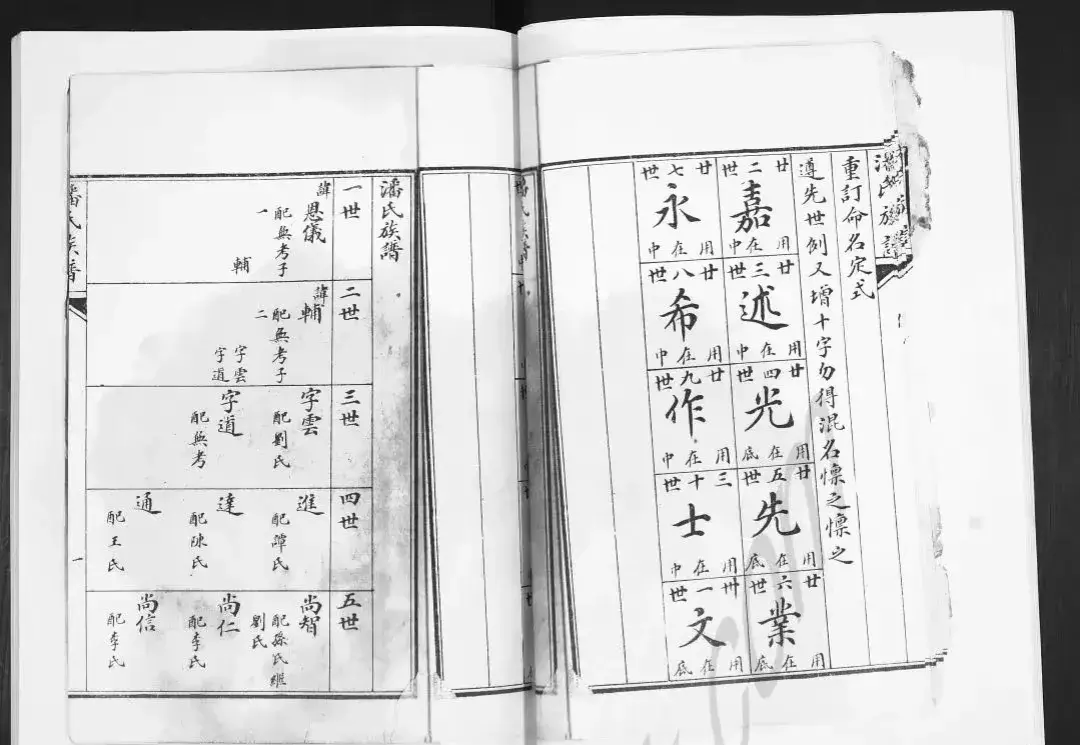 潘氏族譜
重訂命名定式
遵先世例又增十字勿得混名懍之懍之
廿二世
嘉
用在中
廿三世
述
用在中
廿四世
光
用在底
廿五世
先
用在底
廿六世
業
用在底
廿七世
永
用在中
廿八世
希
用在中
廿九世
作
用在中
三十世
士
用在中
卅一世
文
用在底
潘氏族譜
一世
諱恩儀
配無考子
一
輔
二世
諱輔
配無考子
二
字雲
字道
三世
字雲
配劉氏
字道
配無考
四世
進
配譚氏
達
配陳氏
通
配王氏
五世
尚智
配孫氏繼
劉氏
尚仁
配李氏
尚信
配李氏
潘氏族譜
一